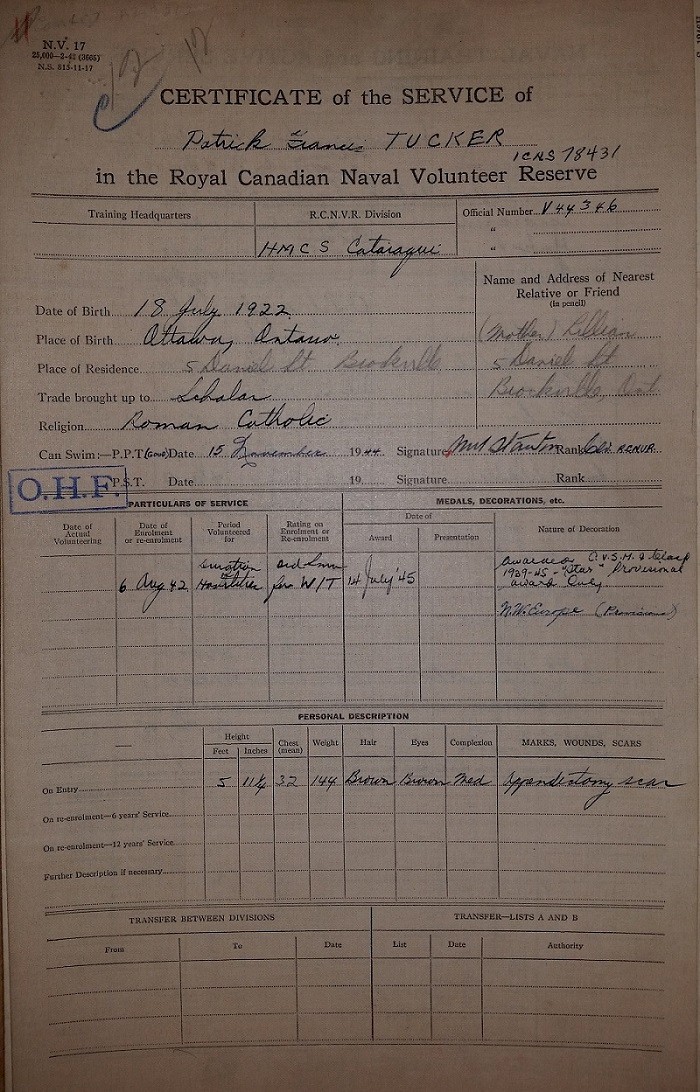 N.V. 17
25,000—2-42 (3665)
N.S. 815-11-17
CERTIFICATE of the SERVICE of
Patrick Francis TUCKER
ICNS 78431
in the Royal Canadian Naval Volunteer Reserve
Training Headquarters R.C.N.V.R. Division Official Number V44346
"
HMCS Cataraqui "
Name and Address of Nearest
Relative or Friend
(in pencil)
Date of Birth 18 July 1922
Place of Birth Ottawa, Ontario. (Mother) Lillian
Place of Residence 5 Daniel St Brockville 5 Daniel St
Trade brought up to Scholar Brockville, Ont
Religion Roman Catholic
Can Swim:—P.P.T. (Good) Date 15 November 1944 Signature Stanton Rank RCNVR
O.H.F. P.S.T. Date 19 Signature Rank
PARTICULARS OF SERVICE MEDALS, DECORATIONS, etc.
Date of Actual Volunteering Date of Enrolment or re-enrolment Period Volunteered for Rating on Enrolment or Re-enrolment Date of Award Presentation Nature of Decoration
6 Aug 42 Duration of Hostilities Ord Smn for W/T 14 July '45 Awarded C.V.S.M. & Clasp
1939-45 - "Star" Provisional
award Only
N.W. Europe (Provisional)
PERSONAL DESCRIPTION
— Height Feet Inches Chest (mean) Weight Hair Eyes Complexion MARKS, WOUNDS, SCARS
On Entry 5 11¼ 32 144 Brown Brown Med Appendectomy scar
On re-enrolment—6 years' Service
On re-enrolment—12 years' Service
Further Description if necessary
TRANSFER BETWEEN DIVISIONS TRANSFER—LISTS A AND B
From To Date List Date Authority